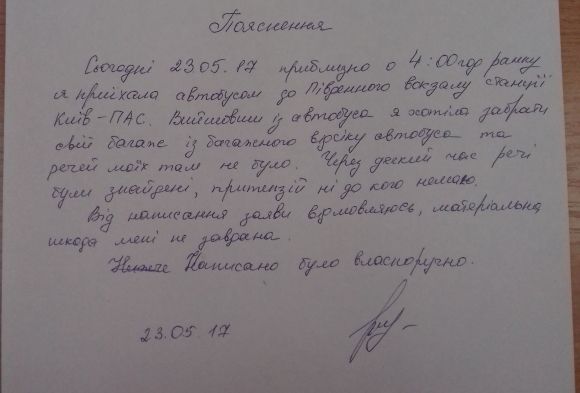 Пояснення
Сьогодні 23.05.17 приблизно о 4:00 год ранку
я приїхала автобусом до Південного вокзалу станції
Київ-ПАС. Вийшовши із автобуса я хотіла забрати
свій багаж із багажного відсіку автобуса та
речей моїх там не було. Через деякий час речі
були знайдені, притензій ні до кого немаю.
Від написання заяви відмовляюсь, матеріальна
шкода мені не заврана.
Написано було власноручно.
23.05.17